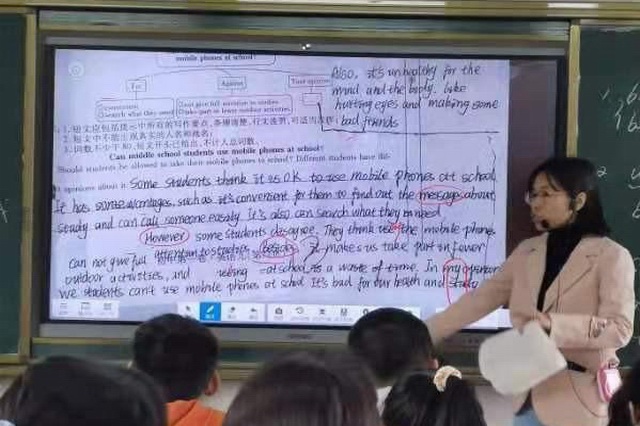 mobile phones at school?
For
Against
Your opinion
Also, it's unhealthy for the
mind and the body. Like
hurting eyes and making some
bad friends
1. 短文应包括提示中所有的写作要点,条理清楚,行文连贯,可适当发挥;
2. 短文中不能出现真实的人名和地名;
3. 词数不少于80,短文开头已给出,不计入总词数。
Can middle school students use mobile phones at school?
Should students be allowed to take their mobile phones to school? Different students have dif-
opinions about it Some students think it is OK to use mobile phones at school
It has some advantages, such as it's convenient for them to find out the message about
study and can call someone easily. It's also can search what they need
However some students disagree. They think use the mobile phones
can not give full attention to studies, besides it makes us take part in fewer
outdoor activities, and using at school is a waste of time. In my opinion
we students can't use mobile phones at school It's bad for our health and study